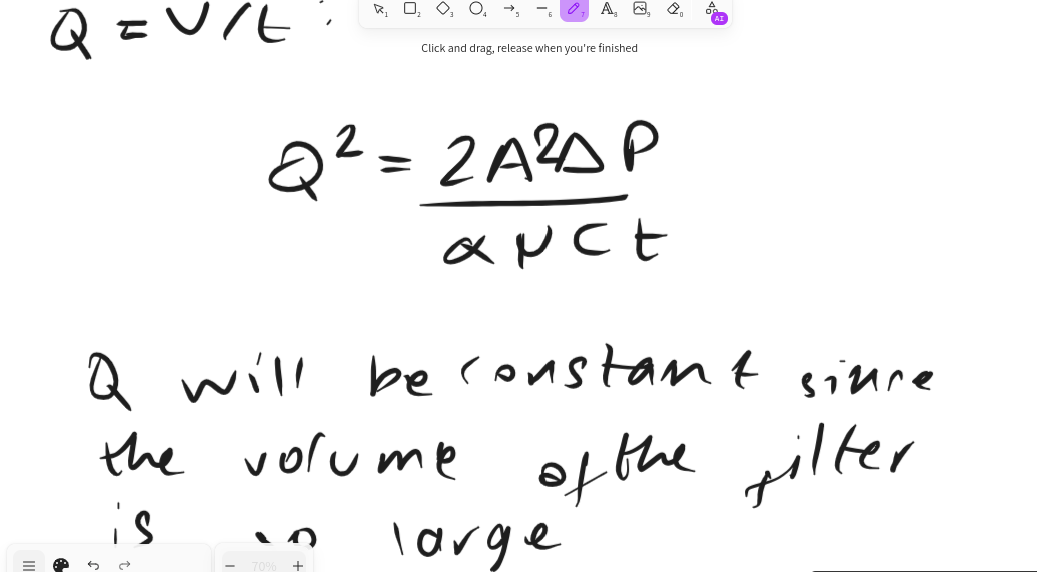 Q = V/t :
Click and drag, release when you're finished
Q² = 2A²ΔP
α μ C t
Q will be constant since
the volume of the filter
is so large
70%